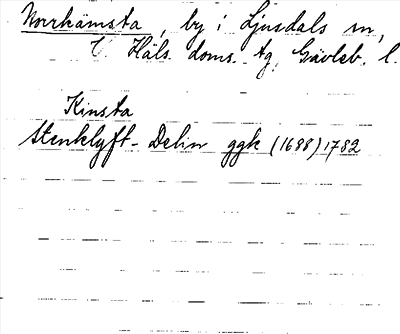 Norrkämsta, by i Ljusdals sn,
V. Häls. doms. tg, Gävleb. l.
Kinsta
Stenklyft - Delin ggk (1688) 1782